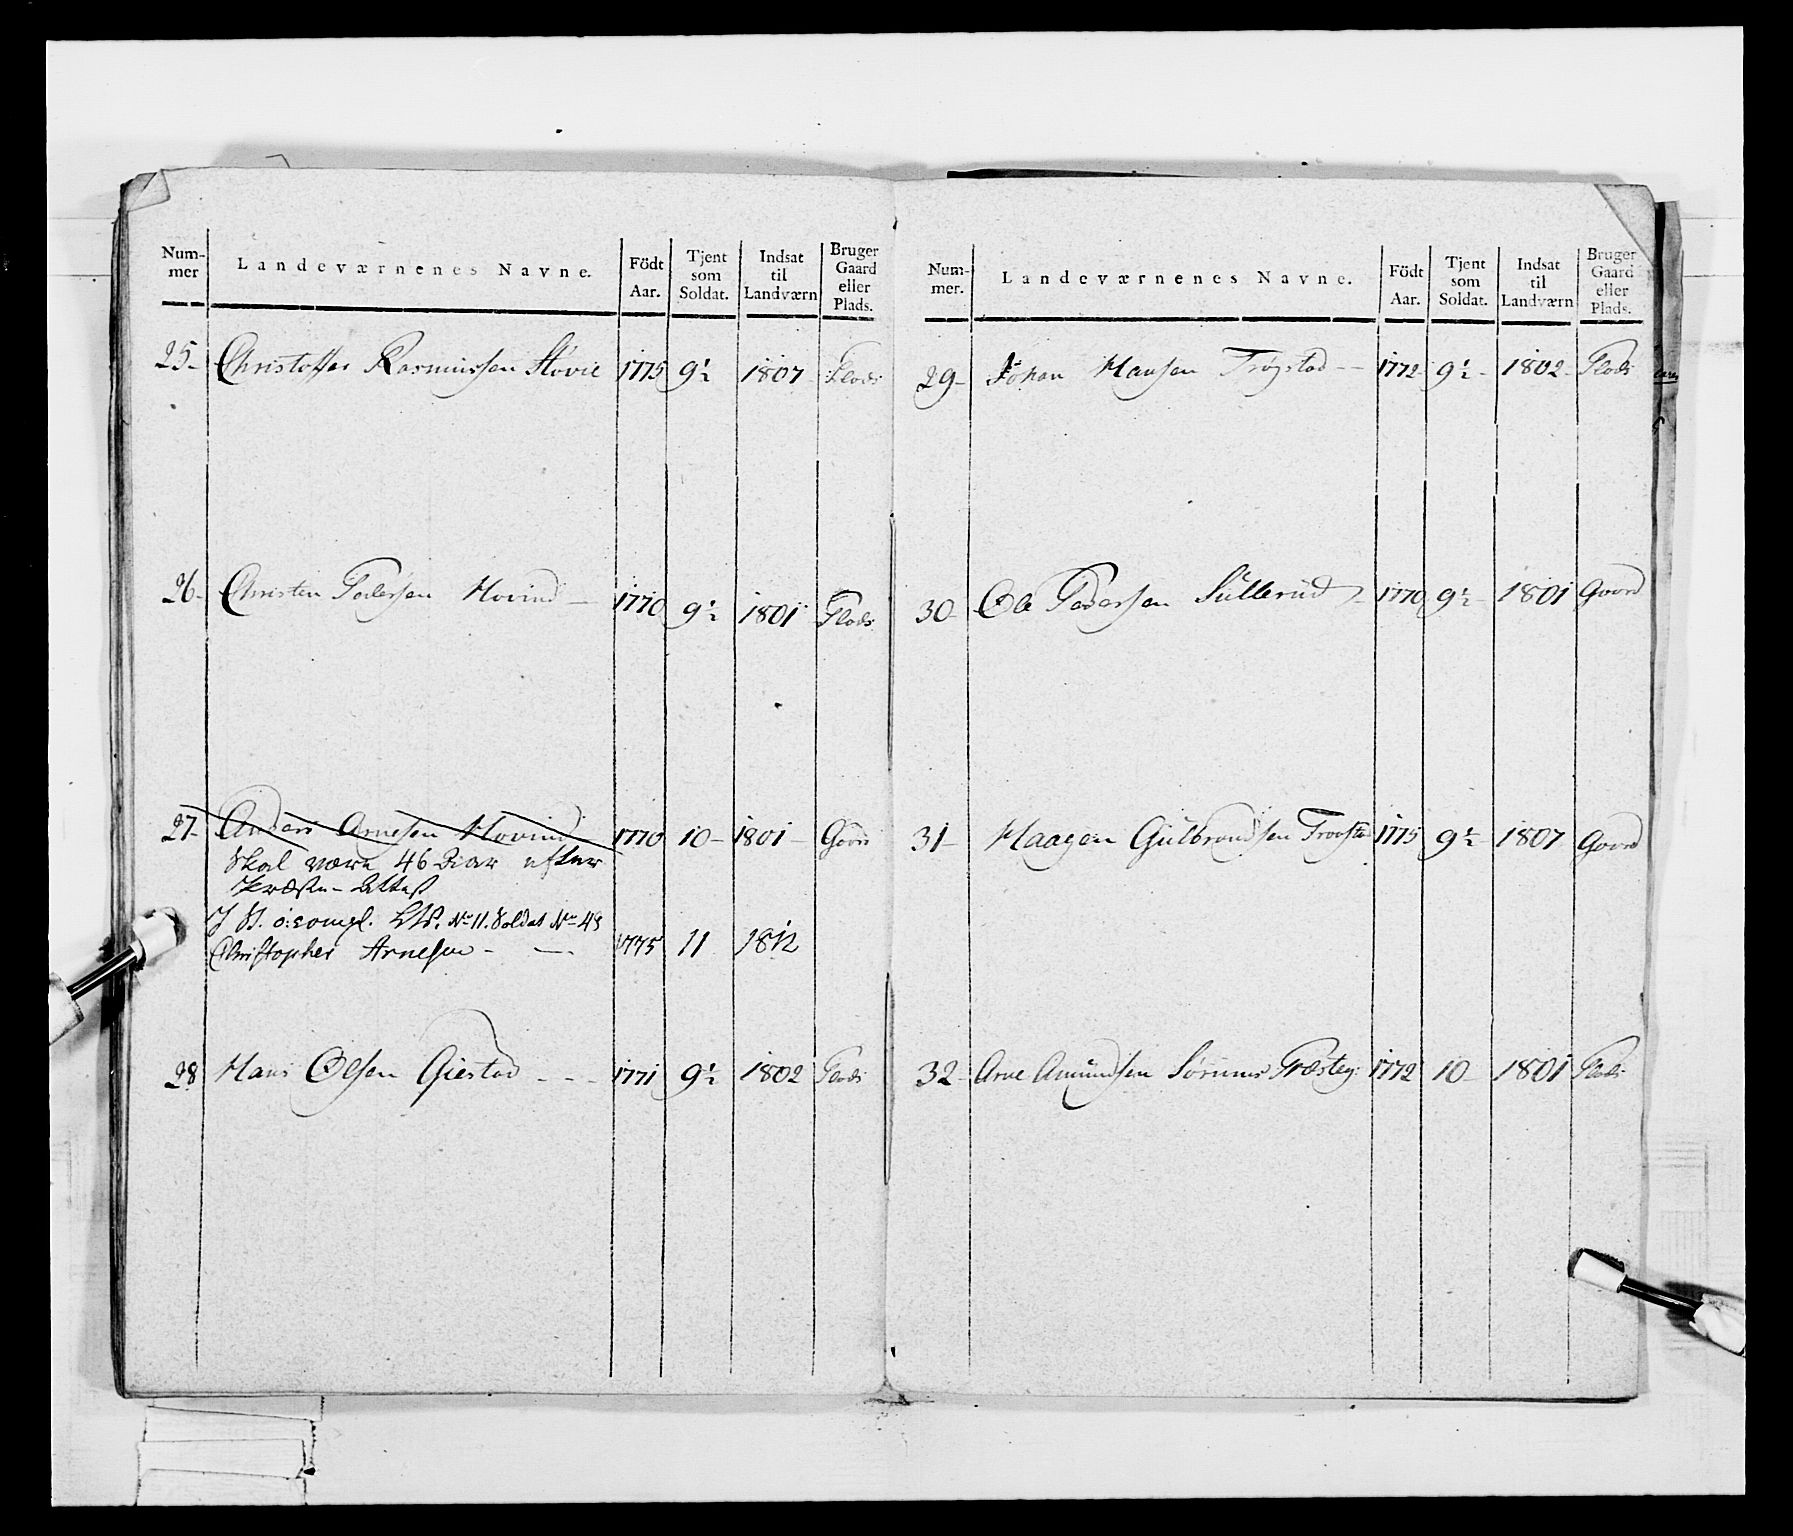 Num-
mer
Landeværnenes Navne.
Födt
Aar.
Tjent
som
Soldat.
Indsat
til
Landværn
Bruger
Gaard
eller
Plads.
25- Christoffer Rasmussen Støvie 1775 9½ 1807- Plads
26- Christen Pedersen Hovind- 1770 9½ 1801 Plads
27- Anders Arnesen Hovind 1770 10- 1801- Gaard
Skal være 46 Aar efter
Præste-Attest
No 11. Soldat No 49
Christopher Arnesen - - 1775 11 1812
28 Hans Olsen Gierstad - - - 1771 9½ 1802 Plads
Num-
mer.
Landeværnenes Navne.
Födt
Aar.
Tjent
som
Soldat.
Indsat
til
Landværn
Bruger
Gaard
eller
Plads.
29- Johan Hansen Trøgstad -- 1772- 9½- 1802- Plads
30- Ole Pedersen Sullerud- 1770 9½- 1801 Gaard
31- Haagen Gulbrandsen 1775 9½- 1807 Gaard
32- Arne Amundsen Sørums Præsteg: 1772 10- 1801 Plads